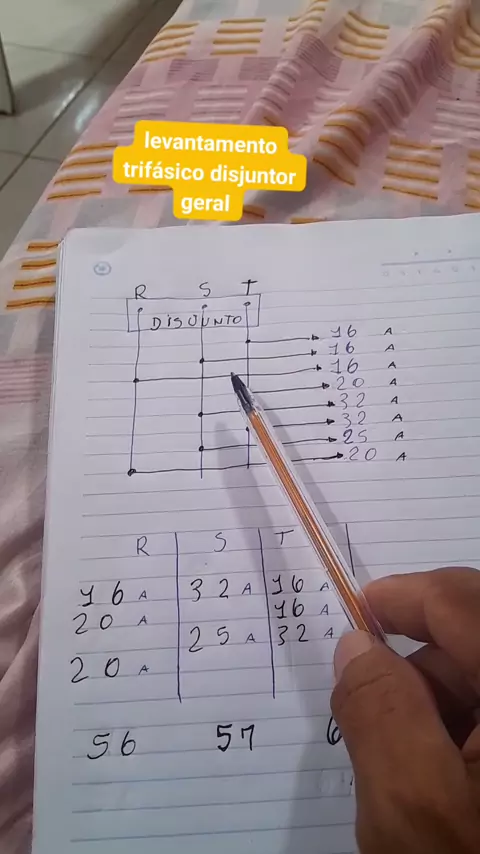 levantamento
trifásico disjuntor
geral
R S T
DISJUNTO
16 A
16 A
16 A
20 A
32 A
32 A
25 A
20 A
R S T
16 A 32 A 16 A
20 A 16 A
25 A 32 A
20 A
56 57 6